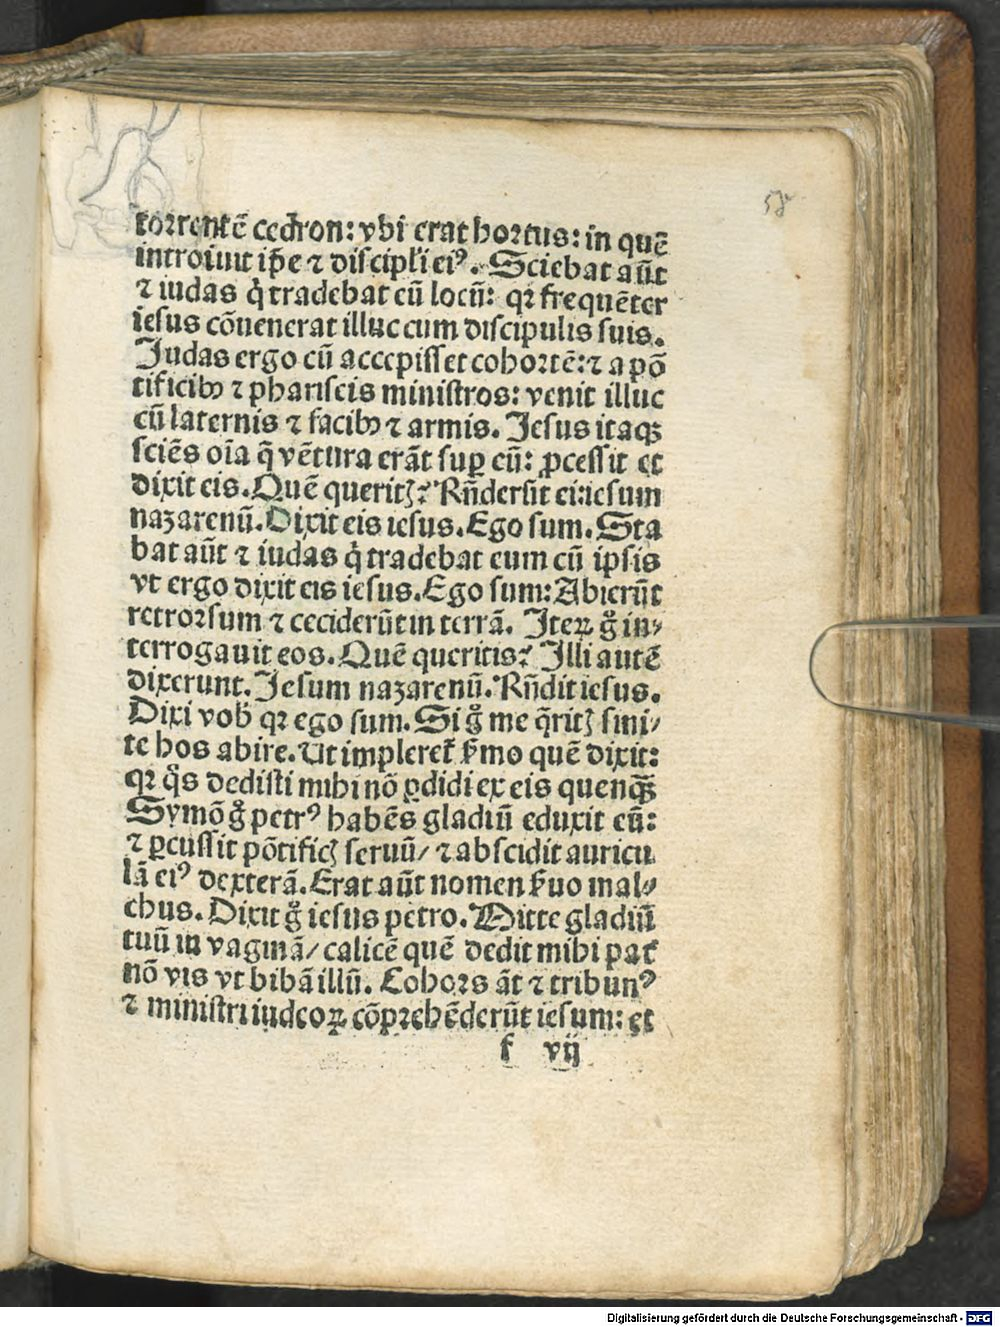 58
torrentē cedron: vbi erat hortus: in quē
introiuit ip̄e ⁊ discipl̄i eiꝰ. Sciebat aūt
⁊ iudas q̇ tradebat eū locū: qꝛ frequēter
iesus cōuenerat illuc cum discipulis suis.
Iudas ergo cū accepisset cohortē: ⁊ a pō
tificibꝰ ⁊ phariseis ministros: venit illuc
cū laternis ⁊ facibꝰ ⁊ armis. Jesus itaqꝫ
sciēs oīa q̄ vētura erāt suꝑ eū: ꝓcessit et
dixit eis. Quē queritꝭ? Rn̄derūt ei: iesum
nazarenū. Dixit eis iesus. Ego sum. Sta
bat aūt ⁊ iudas q̇ tradebat eum cū ipsis
vt ergo dixit eis iesus. Ego sum: Abierūt
retrorsum ⁊ ceciderūt in terrā. Iteꝝ g̊ in⸗
terrogauit eos. Quē queritis? Illi autē
dixerunt. Jesum nazarenū. Rn̄dit iesus.
Dixi vob̄ qꝛ ego sum. Si g̊ me q̄ritꝭ sini⸗
te hos abire. Ut impleret᷑ s̄mo quē dixit:
qꝛ q̊s dedisti mihi nō ꝑdidi ex eis quenqꝫ
Symō g̊ petrꝰ habēs gladiū eduxit eū:
⁊ ꝑcussit pōtificꝭ seruū/ ⁊ abscidit auricu
lā eiꝰ dexterā. Erat aūt nomen s̄uo mal⸗
chus. Dixit g̊ iesus petro. Mitte gladiū
tuū in vaginā/ calicē quē dedit mihi pat᷑
nō vis vt bibā illū. Cohors āt ⁊ tribunꝰ
⁊ ministri iudeoꝝ cōprehēderūt iesum: et
f vij
Digitalisierung gefördert durch die Deutsche Forschungsgemeinschaft - DFG